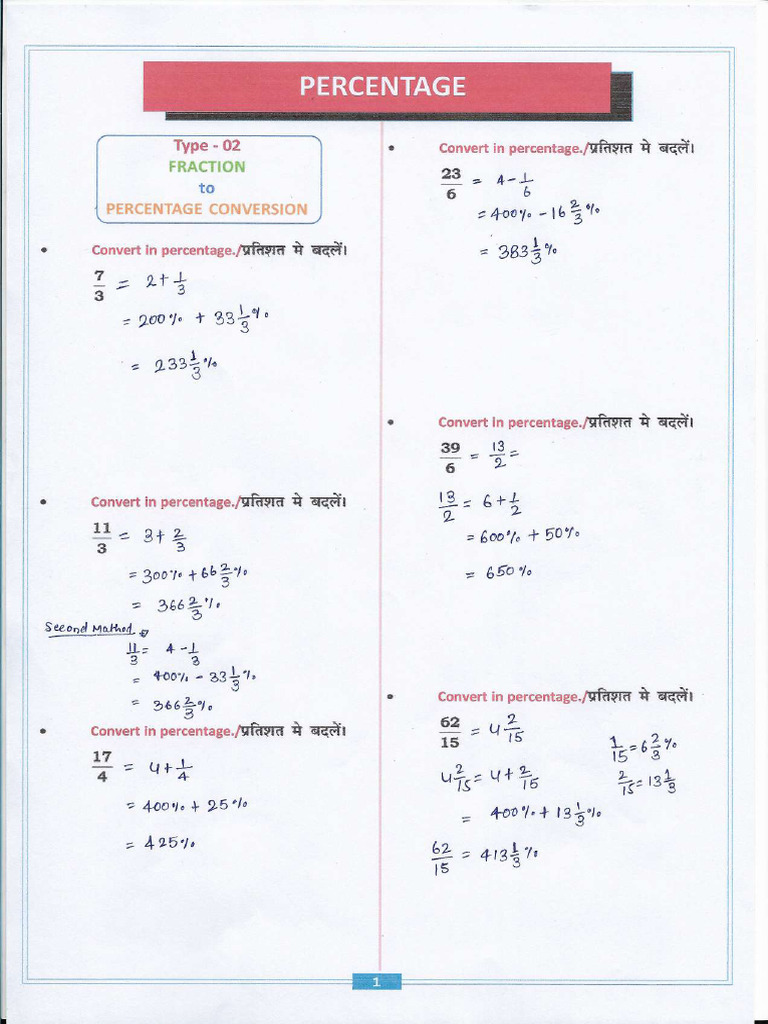 PERCENTAGE
Type - 02
FRACTION
to
PERCENTAGE CONVERSION
• Convert in percentage./प्रतिशत मे बदलें।
7/3 = 2 + 1/3
= 200% + 33 1/3%
= 233 1/3%
• Convert in percentage./प्रतिशत मे बदलें।
11/3 = 3 + 2/3
= 300% + 66 2/3%
= 366 2/3%
Second Mathod
11/3 = 4 - 1/3
= 400% - 33 1/3%
= 366 2/3%
• Convert in percentage./प्रतिशत मे बदलें।
17/4 = 4 + 1/4
= 400% + 25%
= 425%
• Convert in percentage./प्रतिशत मे बदलें।
23/6 = 4 - 1/6
= 400% - 16 2/3%
= 383 1/3%
• Convert in percentage./प्रतिशत मे बदलें।
39/6 = 13/2 =
13/2 = 6 + 1/2
= 600% + 50%
= 650%
• Convert in percentage./प्रतिशत मे बदलें।
62/15 = 4 2/15
1/15 = 6 2/3%
4 2/15 = 4 + 2/15
2/15 = 13 1/3
= 400% + 13 1/3%
62/15 = 413 1/3%
1